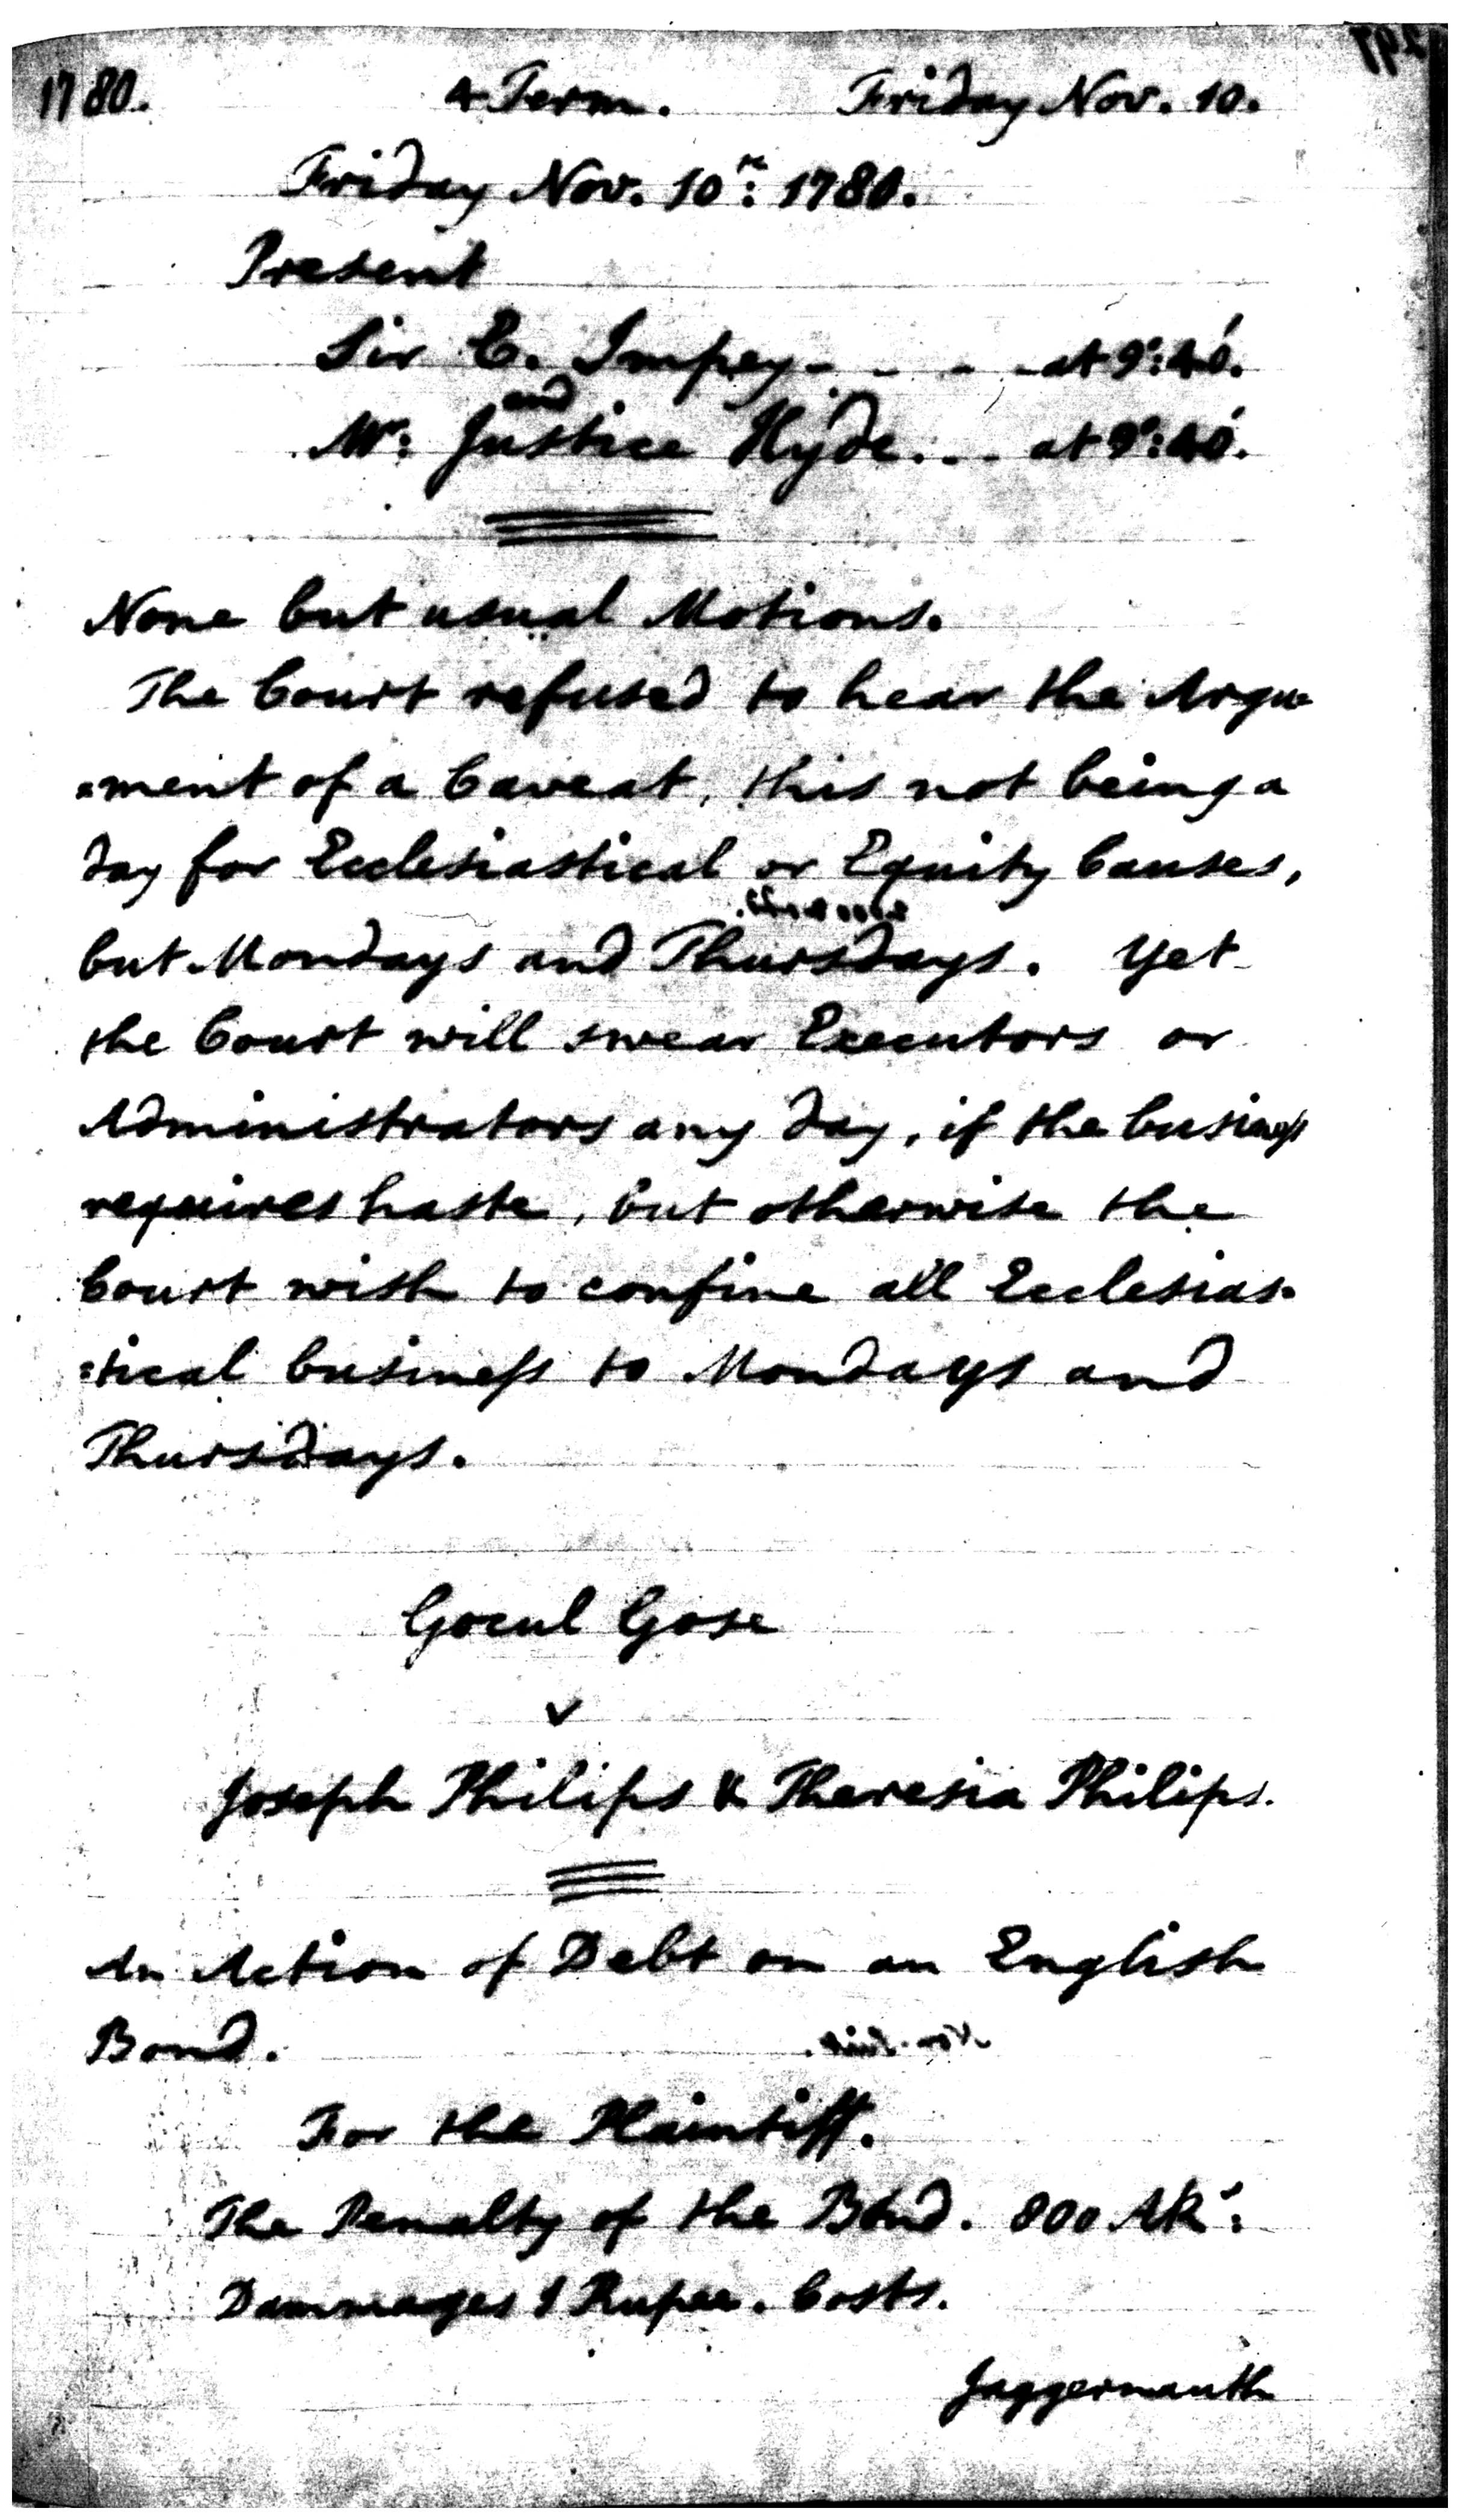 1780. 4 Term. Friday Nov. 10.
Friday Nov. 10th: 1780.
Present
Sir E. Impey - - - - at 9°: 40'.
and
Mr: Justice Hyde . . . at 9°: 40'.
None but usual Motions.
The Court refused to hear the Argu
=ment of a Caveat, this not being a
day for Ecclesiastical or Equity Causes,
but Mondays and Thursdays. Yet
the Court will swear Executors or
Administrators any day, if the business
requires haste, but otherwise the
Court wish to confine all Ecclesias=
=tical business to Mondays and
Thursdays.
Gocul Gose
v
Joseph Philips & Theresia Philips.
An Action of Debt on an English
Bond.
For the Plaintiff.
The Penalty of the Bond. 800 ARs:
Dammages 1 Rupee. Costs.
Jaggernauth